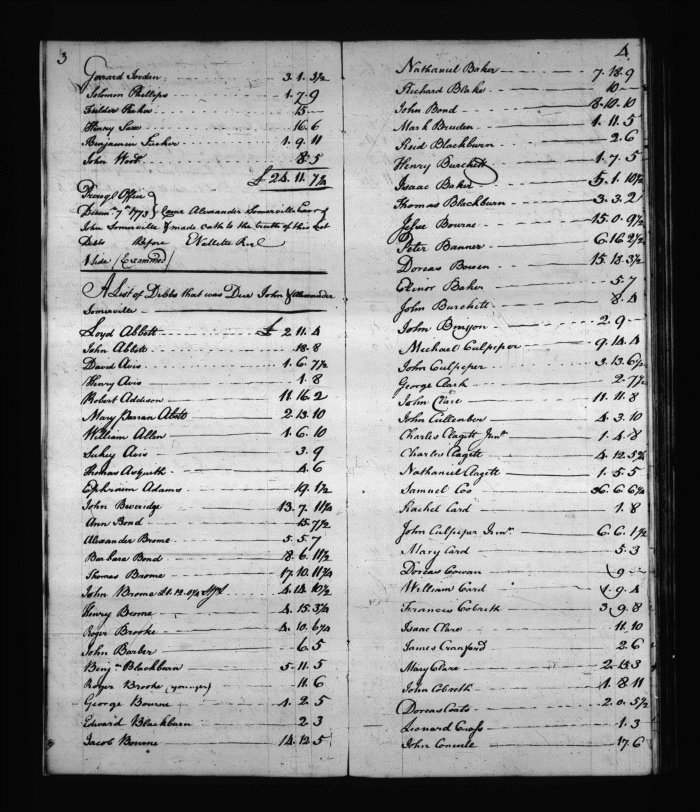 3
Gerrard Jordan 3.1.3½
Solomon Phillips 1.7.9
Fielder Parker 15
Henry Saw 16.6
Benjamin Tucker 1.9.11
John Wood 8.5
£ 24.11.7¼
Prerogl Office
Decemr 7th 1773 } Came Alexander Somerville Exor of
John Somerville & made oath to the truth of this List
Debts Before
1 Side (Examined)
A List of Debbs that was Due John & Alexander
Somerville
Loyd Abbott £ 2.11.4
John Abbott 18.8
David Avis 1.6.7½
Henry Avis 1.8
Robert Addison 11.16.2
Mary Abott 2.13.10
William Allen 1.6.10
Sukey Avis 3.9
Thomas Asquith 4.6
Ephraim Adams 19.1½
John Beveridge 13.7.11¼
Ann Bond 15.7½
Alexander Brome 5.5.7
Barbara Bond 8.6.11½
Thomas Brome 17.10.11¾
John Brome 4.14.10½
Henry Brome 4.15.3¼
Roger Brooke 4.10.6¼
John Barber 6.5
Benjn Blackburn 5.11.5
Roger Brooke (younger) 11.6
George Bourne 1.2.5
Edward Blackburn 2.3
Jacob Bourne 14.12.5
4
Nathaniel Baker 7.18.9
Richard Blake 10
John Bond 8.10.10
Mark Bruden 1.11.5
Reid Blackburn 2.6
Henry Burchett 1.7.5
Isaac Baker 5.1.10½
Thomas Blackburn 3.3.2
Jesse Bourne 15.0.9½
Peter Banner 6.16.2½
Dorcas Bowen 15.18.3½
Elenor Baker 5.7
John Burchett 8.4
John Bruyon 2.9
Michael Culpeper 9.14.4
John Culpeper 3.13.6½
George Clark 2.7½
John Clare 11.11.8
John Cullenber 4.3.10
Charles Clagett Junr 1.4.8
Charles Clagett 4.12.5¾
Nathaniel Clagett 1.5.5
Samuel Coo 36.6.6¼
Rachel Card 1.8
John Culpiper Junr 6.6.1½
Mary Card 5.3
Dorcas Cowan 9
William Card 1.9.4
Frances Cobreth 3.9.8
Isaac Clare 11.10
James Cranford 2.6
Mary Clare 2.13.3
John Cobreth 1.8.11
Dorcas Coats 2.0.5½
Leonard Cross 1.3
John Conwile 17.6